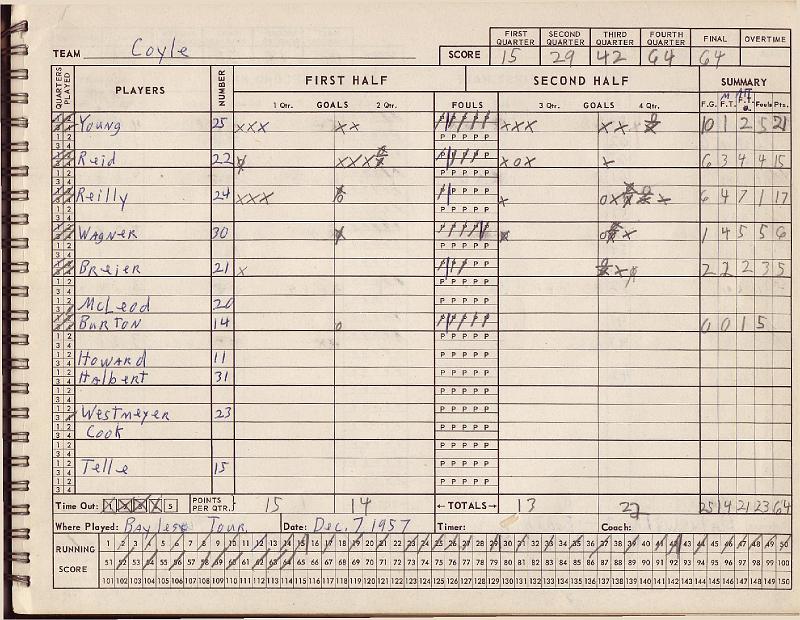 FIRST QUARTER SECOND QUARTER THIRD QUARTER FOURTH QUARTER FINAL OVERTIME
TEAM Coyle SCORE 15 29 42 64 64
QUARTERS PLAYED PLAYERS NUMBER FIRST HALF SECOND HALF SUMMARY
1 Qtr. GOALS 2 Qtr. FOULS 3 Qtr. GOALS 4 Qtr. F.G. F.T. F.T. Fouls Pts.
Young 25 xxx xx P P P P P xxx xx 10 1 2 5 21
Reid 22 xxx P P P P P xox x 6 3 4 4 15
Reilly 24 xxx P P P P P x 6 4 7 1 17
Wagner 30 P P P P P 1 4 5 5 6
Breier 21 x P P P P P 2 2 3 5
McLeod 20
Burton 14 o P P P P P 0 0 1 5
Howard 11
Halbert 31
Westmeyer 23
Cook
Telle 15
Time Out: 1 2 3 4 5 POINTS PER QTR. 15 14 ←TOTALS→ 13 22 25 14 21 23 64
Where Played: Bayless Tour. Date: Dec. 7 1957 Timer: Coach:
RUNNING SCORE
1 2 3 4 5 6 7 8 9 10 11 12 13 14 15 16 17 18 19 20 21 22 23 24 25 26 27 28 29 30 31 32 33 34 35 36 37 38 39 40 41 42 43 44 45 46 47 48 49 50
51 52 53 54 55 56 57 58 59 60 61 62 63 64 65 66 67 68 69 70 71 72 73 74 75 76 77 78 79 80 81 82 83 84 85 86 87 88 89 90 91 92 93 94 95 96 97 98 99 100
101 102 103 104 105 106 107 108 109 110 111 112 113 114 115 116 117 118 119 120 121 122 123 124 125 126 127 128 129 130 131 132 133 134 135 136 137 138 139 140 141 142 143 144 145 146 147 148 149 150